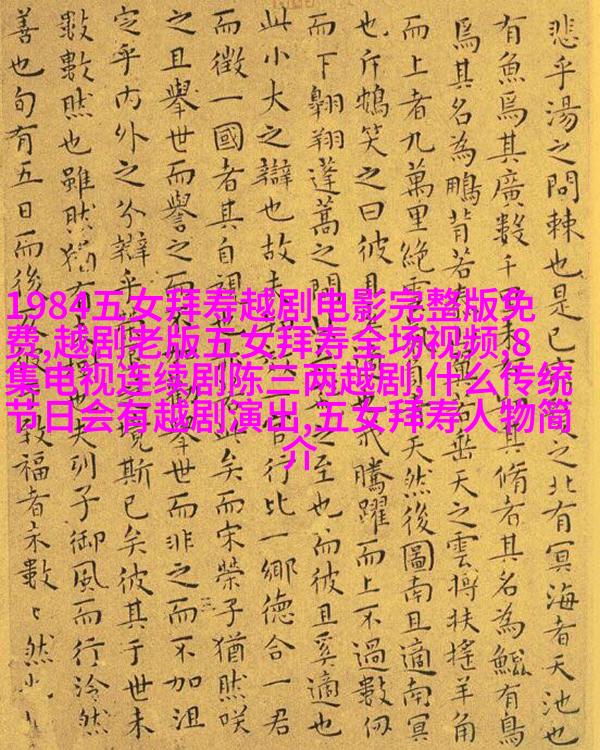 1984五女拜寿越剧电影完整版免
费,越剧老版五女拜寿全场视频,8
集电视连续剧陈三两越剧,什么传统
节日会有越剧演出,五女拜寿人物简
介
悲乎湯之問棘也是已之北有冥海者天池也
有魚焉其廣數千里未有其脩者其名為鯤有鳥
焉其名為鵬背若若垂天之雲摶扶搖羊角
而上者九萬里絶雲天然後圖南且適南冥
也斥鴳笑之曰彼且我騰躍而上不過數仞
而下翱翔蓬蒿之間之至也而彼且奚適也
此小大之辯也故夫知官行比一鄉德合一君
而徵一國者其自視也此矣而宋榮子猶然咲
之且舉世而譽之而不加舉世而非之而不加沮
定乎內外之分辯乎之境斯已矣彼其于世未
數數然也雖然猶有未也夫列子御風而行泠然
善也旬有五日而後彼致福者未數〻然也